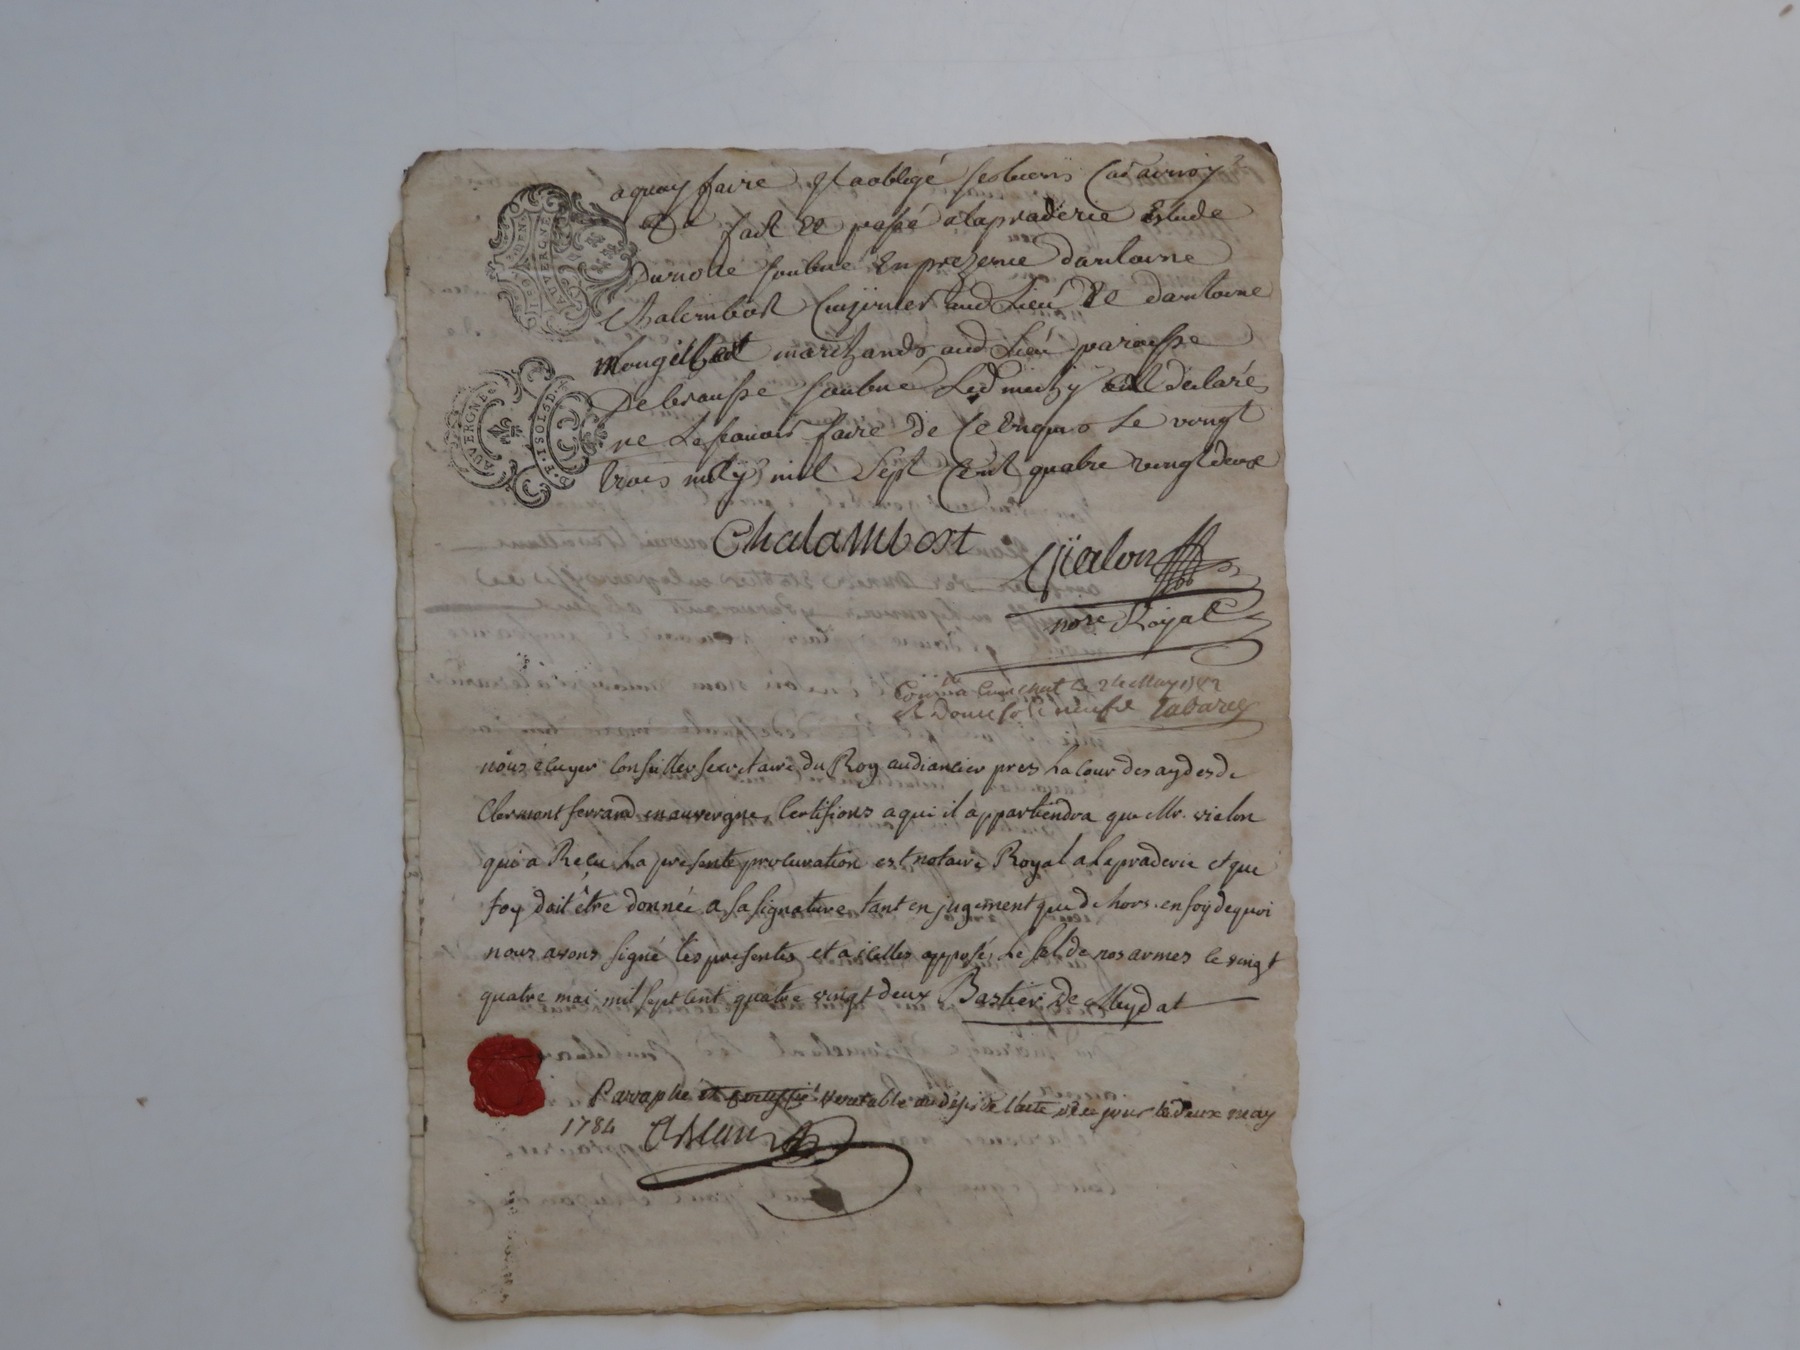 aquoy faire Et a obligé ses biens Car ainsy
fait Et passé a lapraderie Estude
Du no.re soubné En prezence d'antoine
Chalembost Cuizinier aud Lieu Et d'antoine
Mongilbert marchands aud Lieu paroisse
De brousse soubné Led ... a declaré
ne Le scauoir faire de Ce Enquis Le vingt
trois may mil Sept Cent quatre vingt deux
Chalambost
Vialon
no.re Royal
Le 24 May 1782
nous écuyer Conseiller secretaire du Roy audiancier pres La Cour des aydes de
Clermont ferrand en auvergne, Certifions a qui il appartiendra que Mr. vialon
qui a Reçu La presente procuration est notaire Royal a Lapraderie et que
foy doit être donnée a sa signature tant en jugement que dehors. en foy de quoi
nous avons signé les presentes et a icelles apposé Le sel de nos armes le vingt
quatre mai mil sept cent quatre vingt deux Bastier De Meydat
Paraphé et certiffié veritable au désir de l'acte de ce jour le deux may
1784
AUVERGNE
AUVERGNE